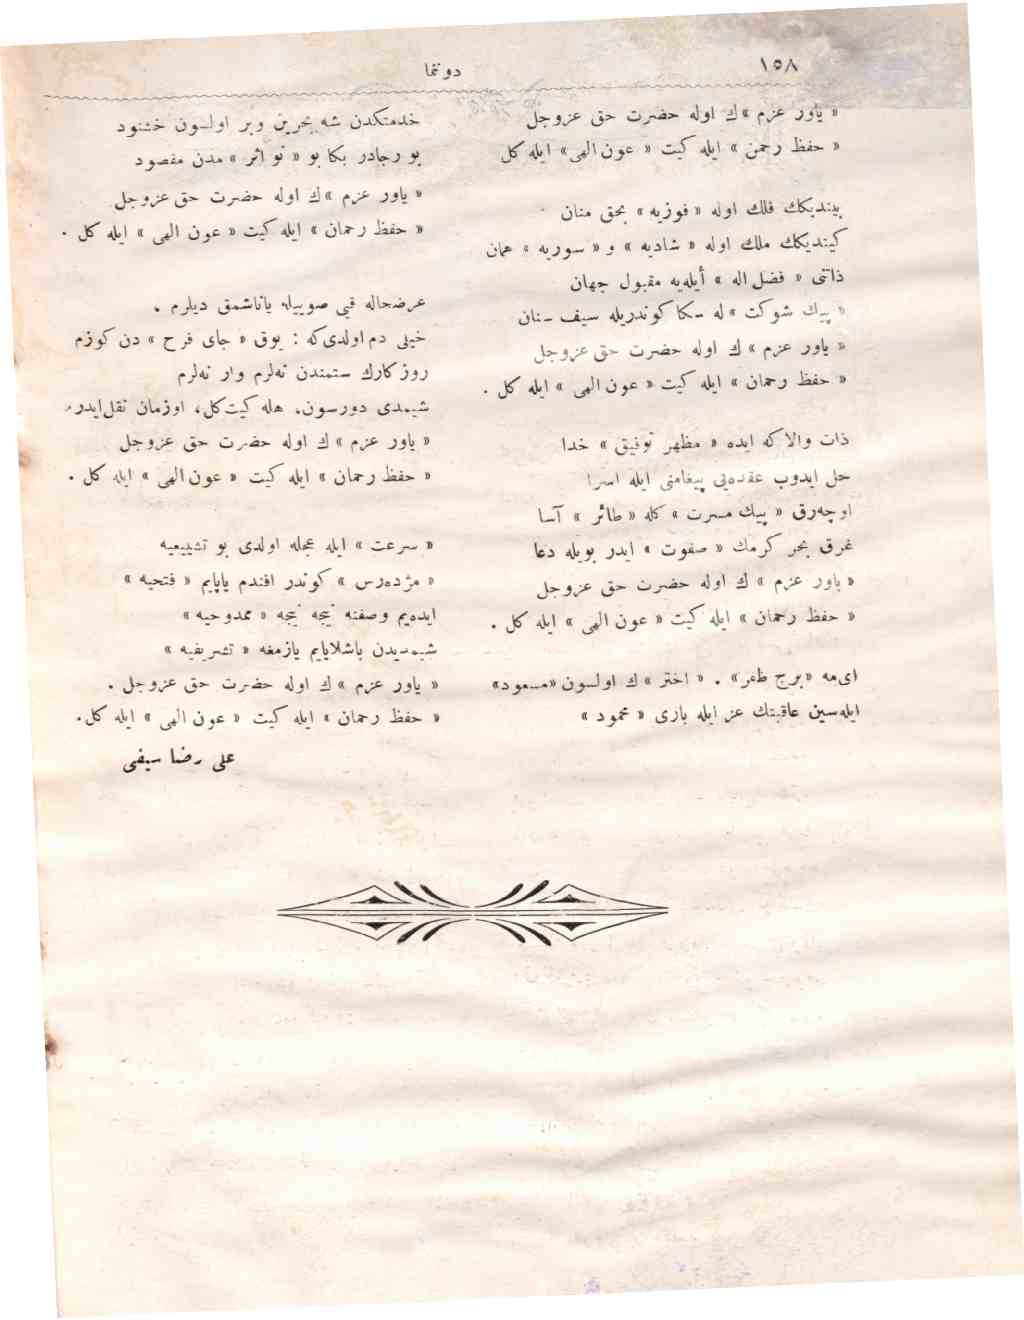 ١٥٨
دوننما
« ياور عزم » ك اوله حضرت حق عزوجل
« حفظ رحمن » ايله كيت « عون الهى » ايله كل
بينديكك فلك اوله « فوزيه » بحق منان
كينديكك ملك اوله « شاديه » و « سوريه » همان
ذاتنى « فضل اله » أيله‌يه مقبول جهان
« پيك شوكت » له سكا كوندريله سيف سنان
« ياور عزم » ك اوله حضرت حق عزوجل
« حفظ رحمان » ايله كيت « عون الهى » ايله كل .
ذات والا كه ايده « مظهر توفيق » خدا
حل ايدوب عقده‌يى پيغامنى ايله اسرا
اوچه‌رق « پيك مسرت » كله « طائر » آسا
غرق بحر كرمك « صفوت » ايدر بويله دعا
« ياور عزم » ك اوله حضرت حق عزوجل
« حفظ رحمان » ايله كيت « عون الهى » ايله كل .
اى مه « برج ظفر » . « اختر » ك اولسون « مسعود »
ايله‌سين عاقبتك عز ايله بارى « محمود »
خدمتكدن شه بحرين وبر اولسون خشنود
بو رجادر بكا بو « نو اثر » مدن مقصود
« ياور عزم » ك اوله حضرت حق عزوجل
« حفظ رحمان » ايله كيت « عون الهى » ايله كل .
عرضحاله قپى صوييله ياناشمق ديلرم .
خيلى دم اولدى كه : يوق « جاى فرح » دن كوزم
روزكارك ستمندن نه‌لرم وار نه‌لرم
شيمدى دورسون، هله كيت كل، اوزمان نقل ايدرم
« ياور عزم » ك اوله حضرت حق عزوجل
« حفظ رحمان » ايله كيت « عون الهى » ايله كل .
« سرعت » ايله عجله اولدى بو تشييعيه
« مژده‌رس » كوندر افندم ياپايم « فتحيه »
ايده‌يم وصفنه نيجه نيجه « ممدوحيه »
شيمديدن باشلايايم يازمغه « تشريفيه »
« ياور عزم » ك اوله حضرت حق عزوجل .
« حفظ رحمان » ايله كيت « عون الهى » ايله كل .
على رضا سيفى